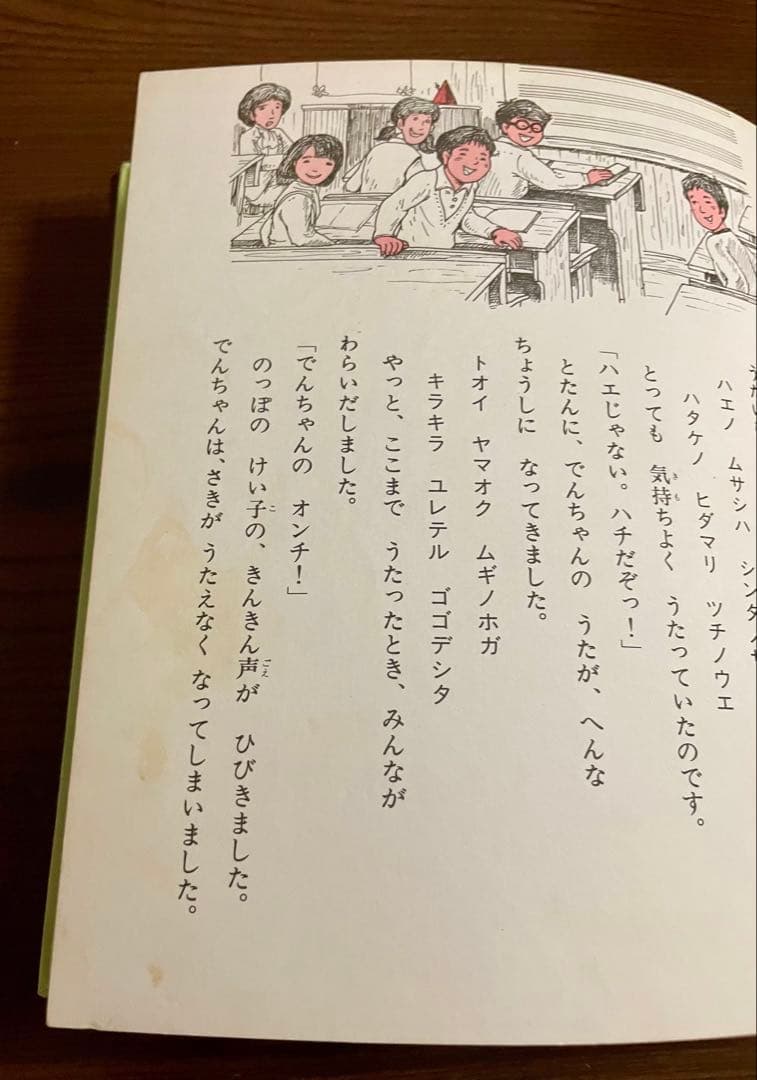 ハエノ　ムサシハ　シンダノサ
ハタケノ　ヒダマリ　ツチノウエ
とっても　気持ちよく　うたっていたのです。
「ハエじゃない。ハチだぞっ！」
とたんに、でんちゃんの　うたが、へんな
ちょうしに　なってきました。
トオイ　ヤマオク　ムギノホガ
キラキラ　ユレテル　ゴゴデシタ
やっと、ここまで　うたったとき、みんなが
わらいだしました。
「でんちゃんの　オンチ！」
のっぽの　けい子の、きんきん声が　ひびきました。
でんちゃんは、さきが　うたえなく　なってしまいました。